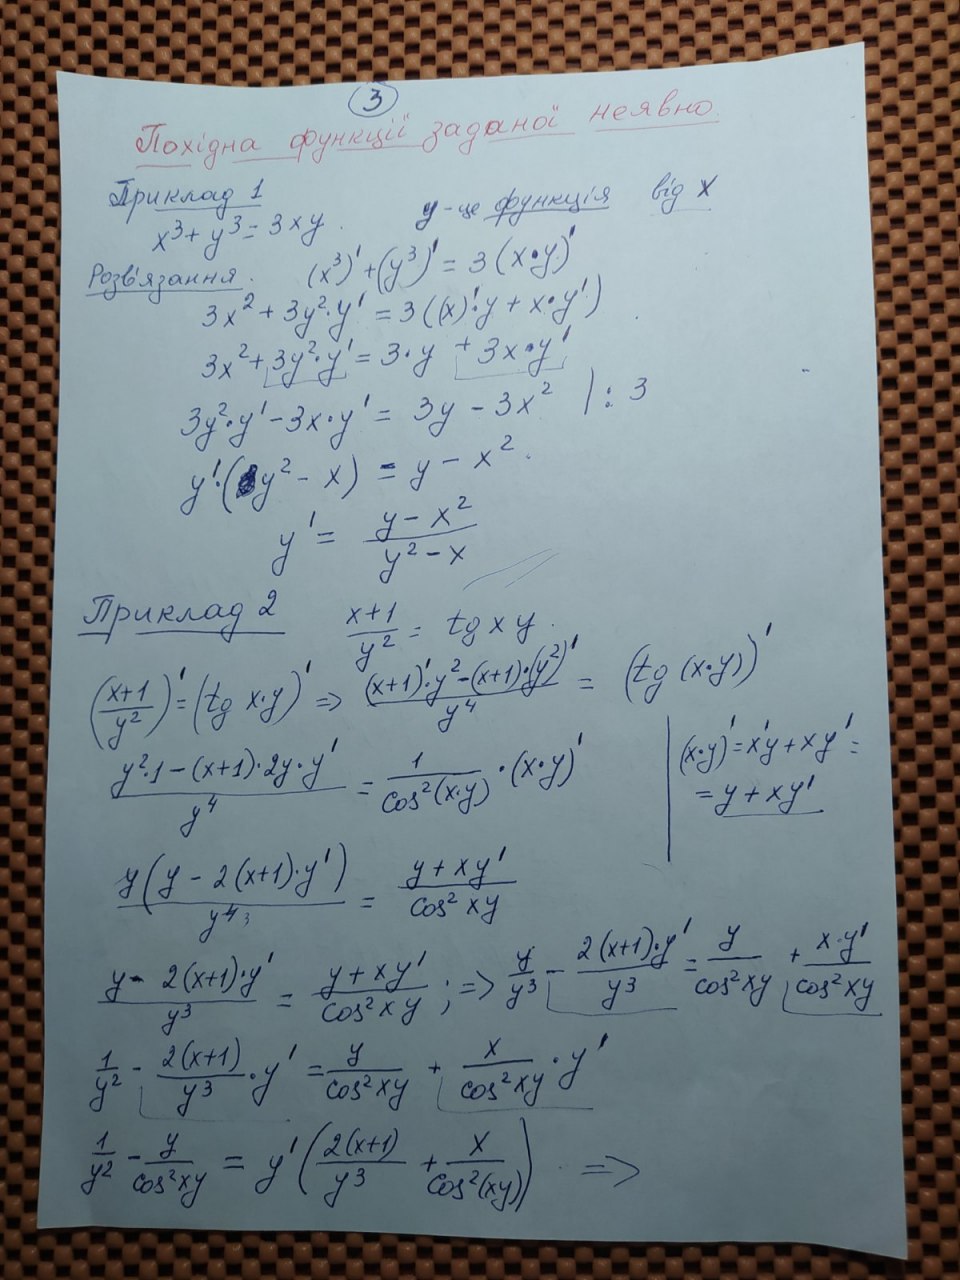 3
Похідна функції заданої неявно.
Приклад 1
x³ + y³ = 3xy.
y - це функція від x
Розв'язання. (x³)' + (y³)' = 3(x·y)'
3x² + 3y²·y' = 3((x)'·y + x·y')
3x² + 3y²·y' = 3·y + 3x·y'
3y²·y' - 3x·y' = 3y - 3x² | : 3
y'·(y² - x) = y - x².
y' = (y - x²)/(y² - x)
Приклад 2
(x+1)/y² = tg xy.
((x+1)/y²)' = (tg x·y)' => ((x+1)'·y² - (x+1)·(y²)')/y⁴ = (tg (x·y))'
(y²·1 - (x+1)·2y·y')/y⁴ = 1/cos²(x·y) · (x·y)'
(x·y)' = x'y + xy' =
= y + xy'
y(y - 2(x+1)·y')/y⁴ ³ = (y + xy')/cos² xy
(y - 2(x+1)·y')/y³ = (y + xy')/cos² xy ; => y/y³ - 2(x+1)·y'/y³ = y/cos² xy + x·y'/cos² xy
1/y² - 2(x+1)/y³ · y' = y/cos² xy + x/cos² xy · y'
1/y² - y/cos² xy = y'(2(x+1)/y³ + x/cos²(xy)) =>